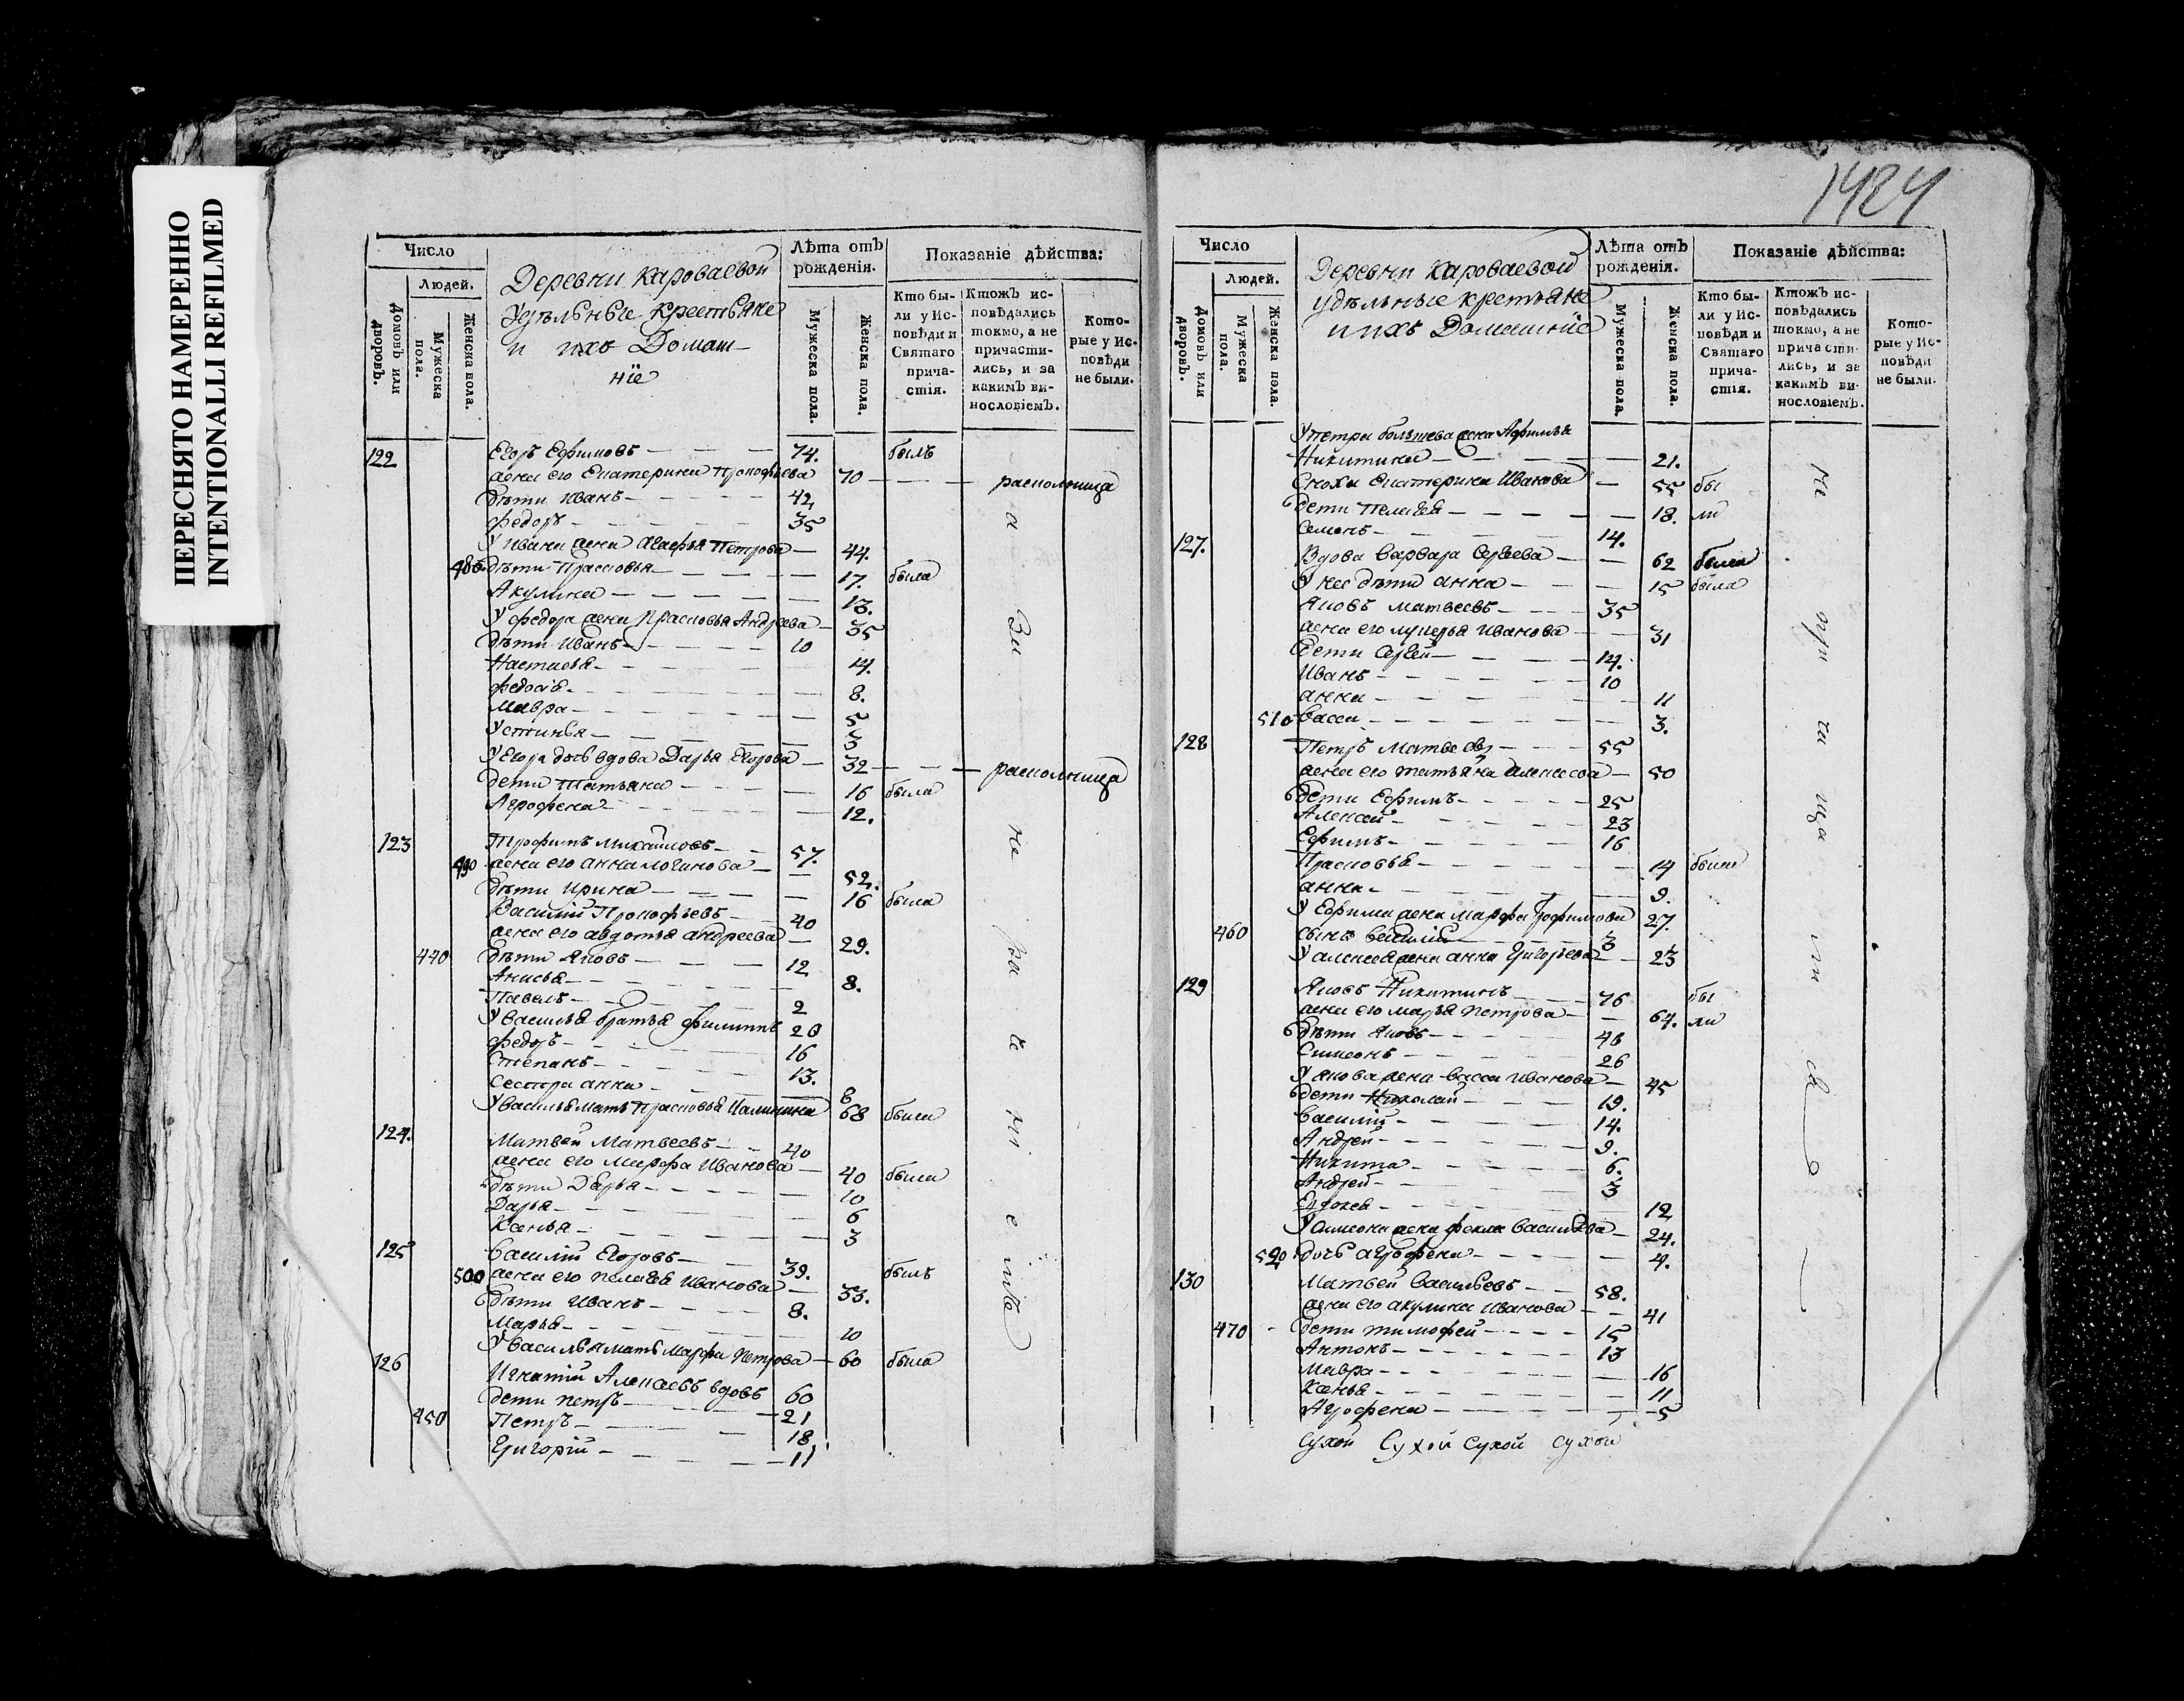 ПЕРЕСНЯТО НАМЕРЕННО
INTENTIONALLI REFILMED
Число
Людей.
Домовъ или дворовъ.
Мужеска пола.
Женска пола.
Деревни Кароваевой
Удѣльные Крестьяне
и ихъ Домаш-
нїе
Лѣта отъ рожденія.
Мужеска пола.
Женска пола.
Показаніе дѣйства:
Кто бы-
ли у Ис-
повѣди и
Святаго
прича-
стія.
Ктожъ ис-
повѣдались
токмо, а не
причасти-
лись, и за
какимъ ви-
нословіемъ.
Кото-
рые у Ис-
повѣди
не были.
122 Егоръ Ефимовъ 74. былъ
жена его Екатерина Прокофьева 70 раскольница
дѣти Иванъ 42
Федоръ 35
У Ивана жена Агафья Петрова 44.
дѣти Прасковья 17. была
Акулина 13.
У Федора жена Прасковья Андреева 35
дѣти Иванъ 10
Настасья 14.
Федосья 8.
Мавра 5
Устинья 3
У Егора дочь вдова Дарья Егорова 32 раскольница
дети Татьяна 16 была
Агрофена 12.
123 Трофимъ Михайловъ 57.
490 жена его Анна Логинова 52.
дѣти Ирина 16 была
Василій Прокофьевъ 40
жена его Авдотья Андреева 29.
440 дѣти Яковъ 12
Анисья 8.
Павелъ 2
У Василья братья Филиппъ 20
Федоръ 16
Степанъ 13.
Сестра Анна 8
У Василья мать Прасковья Калинина 68 была
124. Матвей Матвеевъ 40
жена его Марфа Иванова 40 была
дѣти Дарья 10
Дарья 6
Ксенья 3
125 Василій Егоровъ 39. былъ
500 жена его Пелагея Иванова 33.
дѣти Иванъ 8.
Марья 10
У Василья мать Марфа Петрова 60 была
126 Игнатій Алексеевъ вдовъ 60
дети Петръ 21
450 Петръ 18
Григорій 11
1424
Число
Людей.
Домовъ или дворовъ.
Мужеска пола.
Женска пола.
Деревни Кароваевой
удѣльные крестьяне
и ихъ Домашнїе
Лѣта отъ рожденія.
Мужеска пола.
Женска пола.
Показаніе дѣйства:
Кто бы-
ли у Ис-
повѣди и
Святаго
прича-
стія.
Ктожъ ис-
повѣдались
токмо, а не
причасти-
лись, и за
какимъ ви-
нословіемъ.
Кото-
рые у Ис-
повѣди
не были.
У Петра большева жена Афимья
Никитина 21.
Сноха Екатерина Иванова 55 бы
дети Пелагея 18. ли
Семенъ 14.
127. Вдова Варвара Сергеева 62 была
У нее дѣти Анна 15 была
Яковъ Матвеевъ 35
жена его Лукерья Иванова 31
дети Сергей 14.
Иванъ 10
Анна 11
510 Васса 3.
128 Петръ Матвеевъ 55
жена его Татьяна Алексеева 50
дети Ефимъ 25
Алексей 23
Ефимъ 16
Прасковья 14 была
Анна 9.
У Ефима жена Марфа Трофимова 27.
460 сынъ Василій 3
У Алексея жена Анна Григорьева 23
129 Яковъ Никитинъ 76 бы
жена его Марья Петрова 64. ли
дѣти Яковъ 46
Симеонъ 26
У Якова жена Васса Иванова 45
дети Николай 19.
Василій 14.
Андрей 9.
Никита 6.
Андрей 3
Евдокея 12
У Симеона жена Фекла Васильева 24.
520 дочь Агрофена 4.
130 Матвей Васильевъ 58.
жена его Акулина Иванова 41
470 дети Тимофей 15
Антонъ 13
Мавра 16
Ксенья 11
Агрофена 5
Сухой Сухой Сухой Сухой